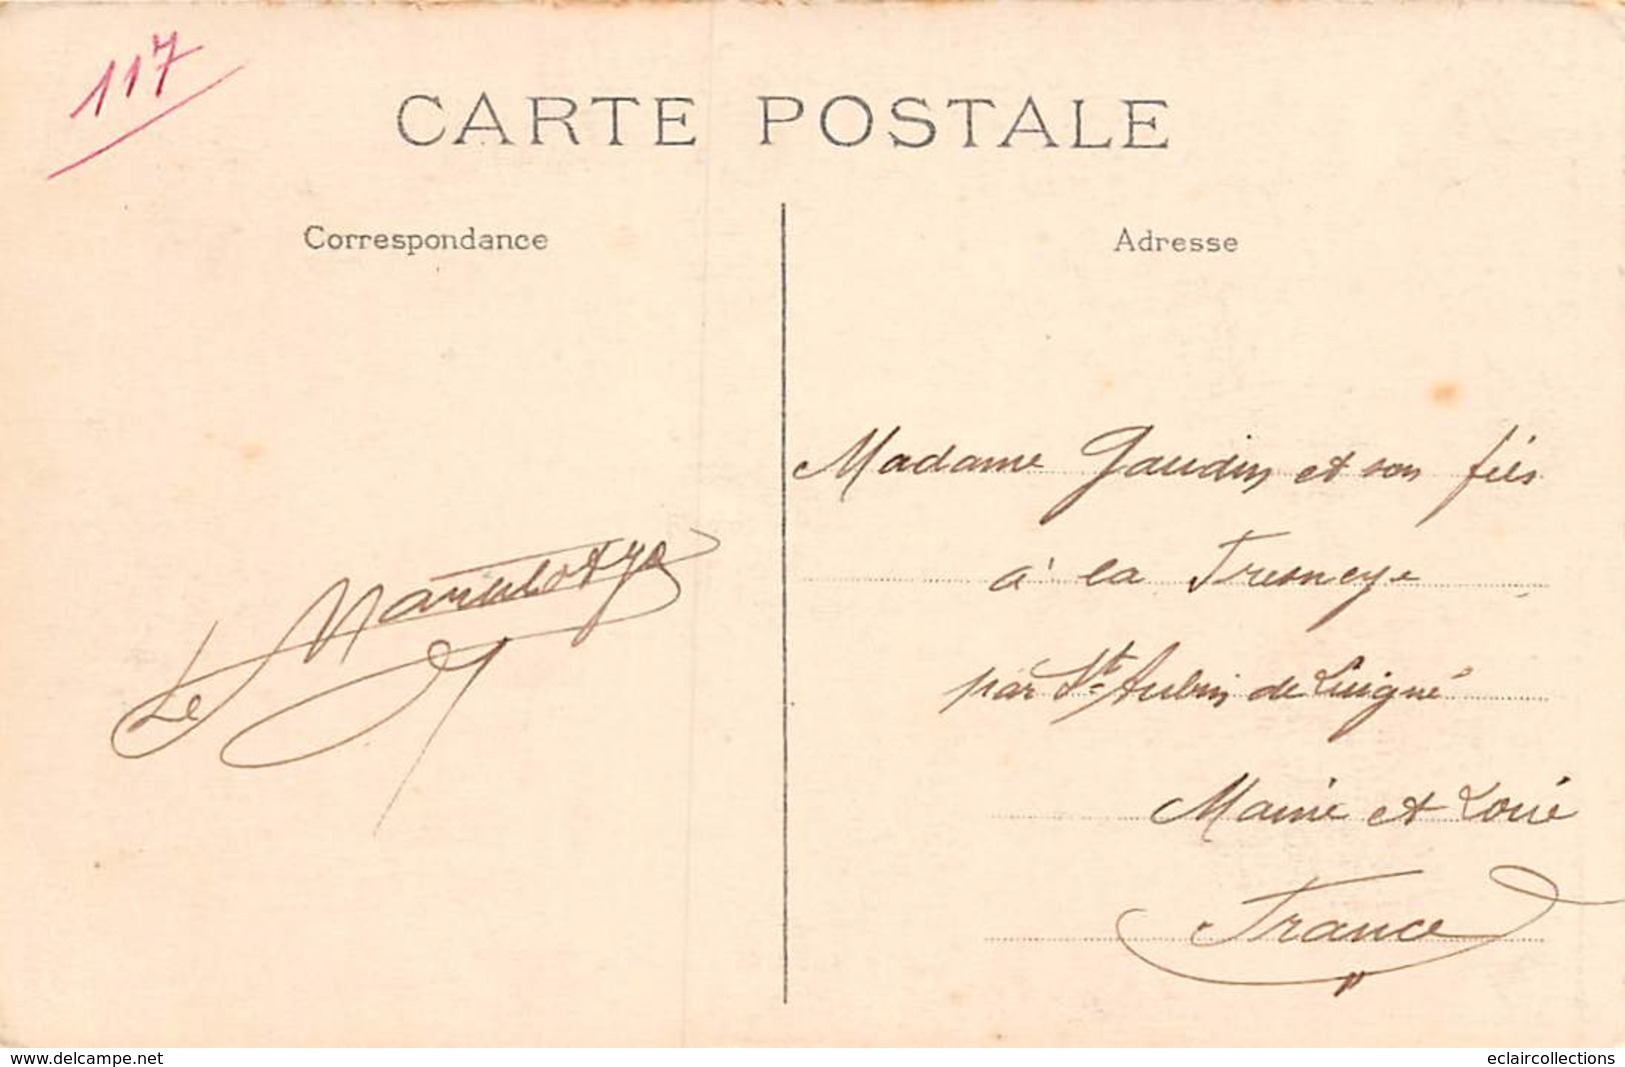 117
CARTE POSTALE
Correspondance
Adresse
Madame Gaudin et son fils
à la
par St Aubin de Luigné
Maine et Loire
France
Le
www.delcampe.net
eclaircollections